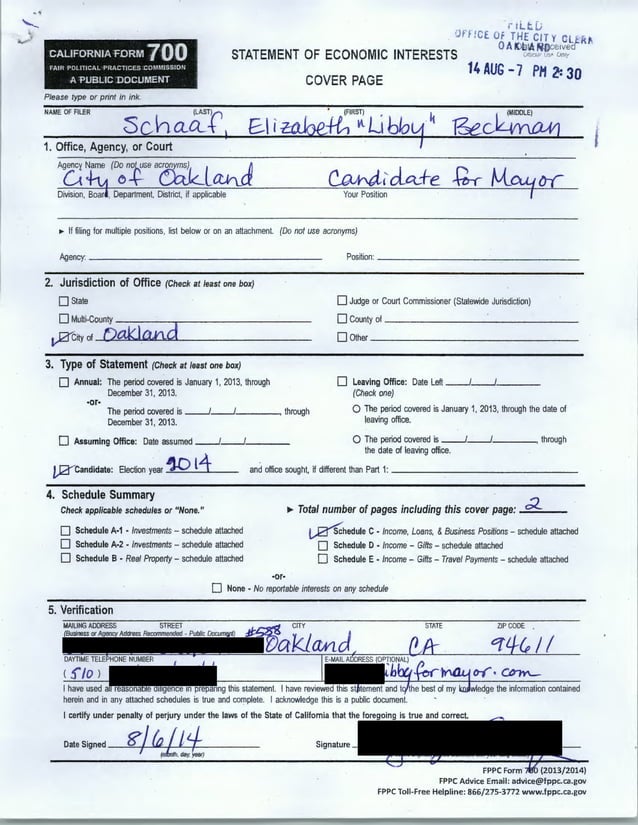 FILED
OFFICE OF THE CITY CLERK
OAKLAND
Official Use Only
14 AUG -7 PM 2:30
CALIFORNIA FORM 700
FAIR POLITICAL PRACTICES COMMISSION
A PUBLIC DOCUMENT
STATEMENT OF ECONOMIC INTERESTS
COVER PAGE
Please type or print in ink.
NAME OF FILER (LAST) (FIRST) (MIDDLE)
Schaaf, Elizabeth "Libby" Beckman
1. Office, Agency, or Court
Agency Name (Do not use acronyms)
City of Oakland Candidate for Mayor
Division, Board, Department, District, if applicable Your Position
► If filing for multiple positions, list below or on an attachment. (Do not use acronyms)
Agency: Position:
2. Jurisdiction of Office (Check at least one box)
State Judge or Court Commissioner (Statewide Jurisdiction)
Multi-County County of
City of Oakland Other
3. Type of Statement (Check at least one box)
Annual: The period covered is January 1, 2013, through Leaving Office: Date Left / /
December 31, 2013. (Check one)
-or-
The period covered is / / , through The period covered is January 1, 2013, through the date of
December 31, 2013. leaving office.
Assuming Office: Date assumed / / The period covered is / / , through
the date of leaving office.
Candidate: Election year 2014 and office sought, if different than Part 1:
4. Schedule Summary
Check applicable schedules or "None." ► Total number of pages including this cover page: 2
Schedule A-1 - Investments – schedule attached Schedule C - Income, Loans, & Business Positions – schedule attached
Schedule A-2 - Investments – schedule attached Schedule D - Income – Gifts – schedule attached
Schedule B - Real Property – schedule attached Schedule E - Income – Gifts – Travel Payments – schedule attached
-or-
None - No reportable interests on any schedule
5. Verification
MAILING ADDRESS STREET CITY STATE ZIP CODE
(Business or Agency Address Recommended - Public Document)
#588 Oakland, CA 94611
DAYTIME TELEPHONE NUMBER E-MAIL ADDRESS (OPTIONAL)
(510) ibbyformayor.com
I have used all reasonable diligence in preparing this statement. I have reviewed this statement and to the best of my knowledge the information contained
herein and in any attached schedules is true and complete. I acknowledge this is a public document.
I certify under penalty of perjury under the laws of the State of California that the foregoing is true and correct.
Date Signed 8/6/14 Signature
(month, day, year)
FPPC Form 700 (2013/2014)
FPPC Advice Email: advice@fppc.ca.gov
FPPC Toll-Free Helpline: 866/275-3772 www.fppc.ca.gov